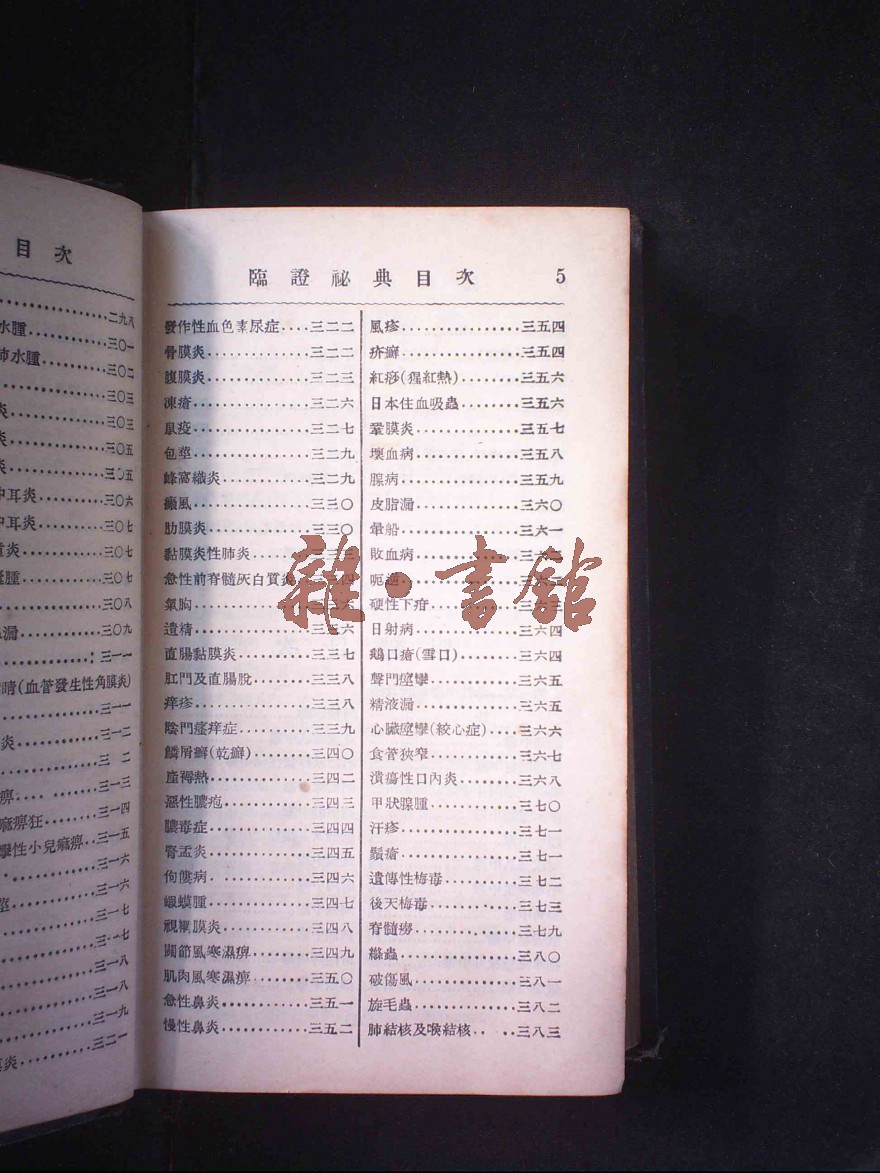 目次
二九八
水腫············三〇一
肺水腫·········三〇二
三〇三
炎············三〇三
炎············三〇五
炎············三〇五
中耳炎·········三〇六
中耳炎·········三〇七
質炎···········三〇七
腫············三〇七
三〇八
漏············三〇九
三一一
睛(血管發生性角膜炎)
三一一
炎············三一二
三一三
痹············三一四
麻痹狂
擊性小兒痲痹··三一五
三一六
三一六
三一七
三一七
三一八
三一八
三一九
三二一
炎
臨證祕典目次 5
發作性血色素尿症····三二二
骨膜炎············三二二
腹膜炎············三二三
凍瘡············三二六
鼠疫············三二七
包莖············三二九
峰窩織炎············三二九
癜風············三三〇
肋膜炎············三三〇
黏膜炎性肺炎············三三三
急性前脊髓灰白質炎····三三四
氣胸············三三六
遺精············三三六
直腸黏膜炎············三三七
肛門及直腸脫············三三八
痒疹············三三八
陰門瘙痒症············三三九
鱗屑癬(乾癬)············三四〇
產褥熱············三四二
惡性膿疱············三四三
膿毒症············三四四
腎盂炎············三四五
佝僂病············三四六
蝦蟆腫············三四七
視網膜炎············三四八
關節風寒濕痹············三四九
肌肉風寒濕痹············三五〇
急性鼻炎············三五一
慢性鼻炎············三五二
風疹············三五四
疥癬············三五四
紅痧(猩紅熱)············三五六
日本住血吸蟲············三五六
鞏膜炎············三五七
壞血病············三五八
腺病············三五九
皮脂漏············三六〇
暈船············三六一
敗血病············三六二
呃逆············三六三
硬性下疳············三六三
日射病············三六四
鵝口瘡(雪口)············三六四
聲門痙攣············三六五
精液漏············三六五
心臟痙攣(絞心症)····三六六
食管狹窄············三六七
潰瘍性口內炎············三六八
甲狀腺腫············三七〇
汗疹············三七一
鬚瘡············三七一
遺傳性梅毒············三七二
後天梅毒············三七三
脊髓癆············三七九
絛蟲············三八〇
破傷風············三八一
旋毛蟲············三八二
肺結核及喉結核·· ··三八三
雜·書館